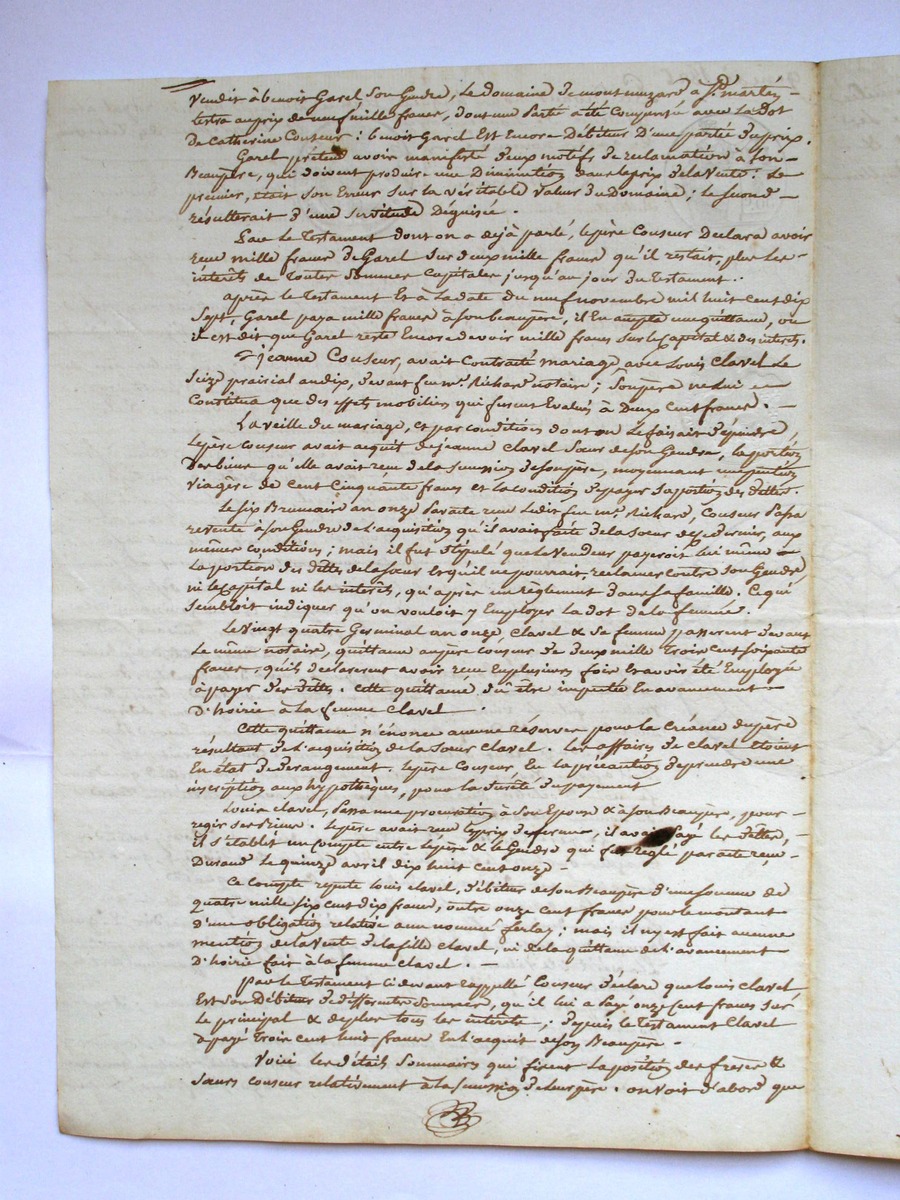 vendit à benoit Garel son Gendre, le domaine de montmuzard a St martin
lestra au prix de neuf mille francs, dont une Partie a été Compensé avec la Dot
de Catherine Couseur : benoit Garel Est Encore Débiteur D'une partie du prix.
Garel prétend avoir manifesté deux motifs de reclamation à son
Beaupère, qui doivent produire une Diminution dans le prix de la Vente : Le
premier, était son Erreur sur la véritable valeur du Domaine ; le second
résulterait d'une servitude Déguisée.
Par le Testament dont on a dejà parlé, le père Couseur Declara avoir
reçu mille francs de Garel sur deux mille francs qu'il restait, plus les
intérêts de toutes sommes capitales jusqu'au jour du testament.
après le Testament Et à La date du neuf novembre mil huit cent dix
sept, Garel paya mille francs à son beaupère, il En a une quittance, où
il est dit que Garel reste Encore devoir mille francs sur le Capital & des interets.
Jeanne Couseur, avait Contracté mariage avec Louis Clavel Le
seize prairial an dix, devant feu mr. Richard notaire ; Son père ne lui
Constitua que des effets mobiliers qui furent Evalués à Deux cent francs.
La veille du mariage, et par conditions dont on le faisait dépendre,
le père couseur avait acquit de jeanne clavel sœur de son Gendre, la portion
des biens qu'elle avait reçu de la succession de son père, moyennant une pention
viagère de cent Cinquante francs et la condition de payer sa portion des dettes.
Le six Brumaire an onze par acte reçu ledit feu mr. Richard, Couseur Passa
revente à son Gendre de l'acquisition qu'il avait faite de la sœur de ce dernier, aux
mêmes conditions ; mais il fut stipulé que le Vendeur payeroit lui même
la portion des dettes de la sœur Et qu'il ne pourrait, reclamer contre son Gendre,
ni le capital ni les interêts, qu'après un règlement dans la famille. Ce qui
sembloit indiquer qu'on vouloit y Employer la dot de la femme.
Le Vingt quatre Germinal an onze, Clavel & sa femme passerent devant
Le même notaire, quittance au père couseur de deux mille trois cent soixante
francs, qu'ils declarerent avoir reçu En plusieurs fois Et avoir été Employée
à payer des dettes. Cette quittance dû être imputée En avancement
d'hoirie à la femme Clavel.
Cette quittance n'énonce aucune réserve pour la Créance du père
résultant de l'acquisition de la sœur Clavel. Les affaires de clavel étoient
En état de derangement, le père Couseur, Eu la précaution de prendre une
inscription aux hypothèques, pour la sureté du payement
Louis clavel, Passa une procuration à son Epouse & à son Beaupère, pour
regir ses biens. Le père avait reçu le prix de ferme, il avait payé les dettes,
il s'établit un compte entre le père & le Gendre qui fut reglé par acte reçu
Durand Le quinze avril dix huit cent onze
Ce Compte repute Louis clavel, débiteur de son Beaupère d'une somme de
quatre mille six cent dix francs, outre onze cent francs pour le montant
d'une obligation relative au nommé ferlay ; mais il n'y est fait aucune
mention de la Vente de la fille clavel, ni de la quittance de l'avancement
d'hoirie fait à la femme Clavel.
Par le Testament ci devant rappellé Couseur déclare que Louis Clavel
Est son Débiteur de differentes Sommes, qu'il lui a Payé onze Cent francs sur
le principal & de plus tous les intérêts ; depuis le Testament Clavel
a payé trois cent huit francs En l'acquit de son Beaupère.
Voici les détails sommaires qui fixent la position des frères &
sœurs couseur relativement à la succession de leur père. on voit d'abord que